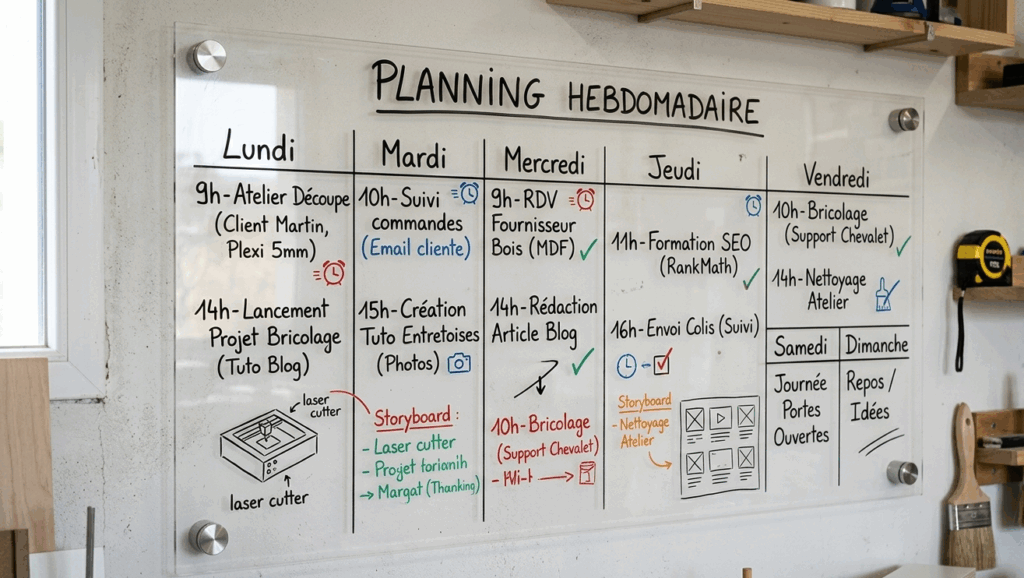 PLANNING HEBDOMADAIRE
Lundi
9h-Atelier Découpe
(Client Martin,
Plexi 5mm)
14h-Lancement
Projet Bricolage
(Tuto Blog)
laser
cutter
laser cutter
Mardi
10h-Suivi
commandes
(Email cliente)
15h-Création
Tuto Entretoises
(Photos)
Storyboard :
- Laser cutter
- Projet torianih
→ Margat (Thanking)
Mercredi
9h-RDV
Fournisseur
Bois (MDF)
14h-Rédaction
Article Blog
10h-Bricolage
(Support Chevalet)
Jeudi
11h-Formation SEO
(RankMath)
16h-Envoi Colis (Suivi)
Storyboard
- Nettoyage
Atelier
Vendredi
10h-Bricolage
(Support Chevalet)
14h-Nettoyage
Atelier
Samedi
Journée
Portes
Ouvertes
Dimanche
Repos /
Idées